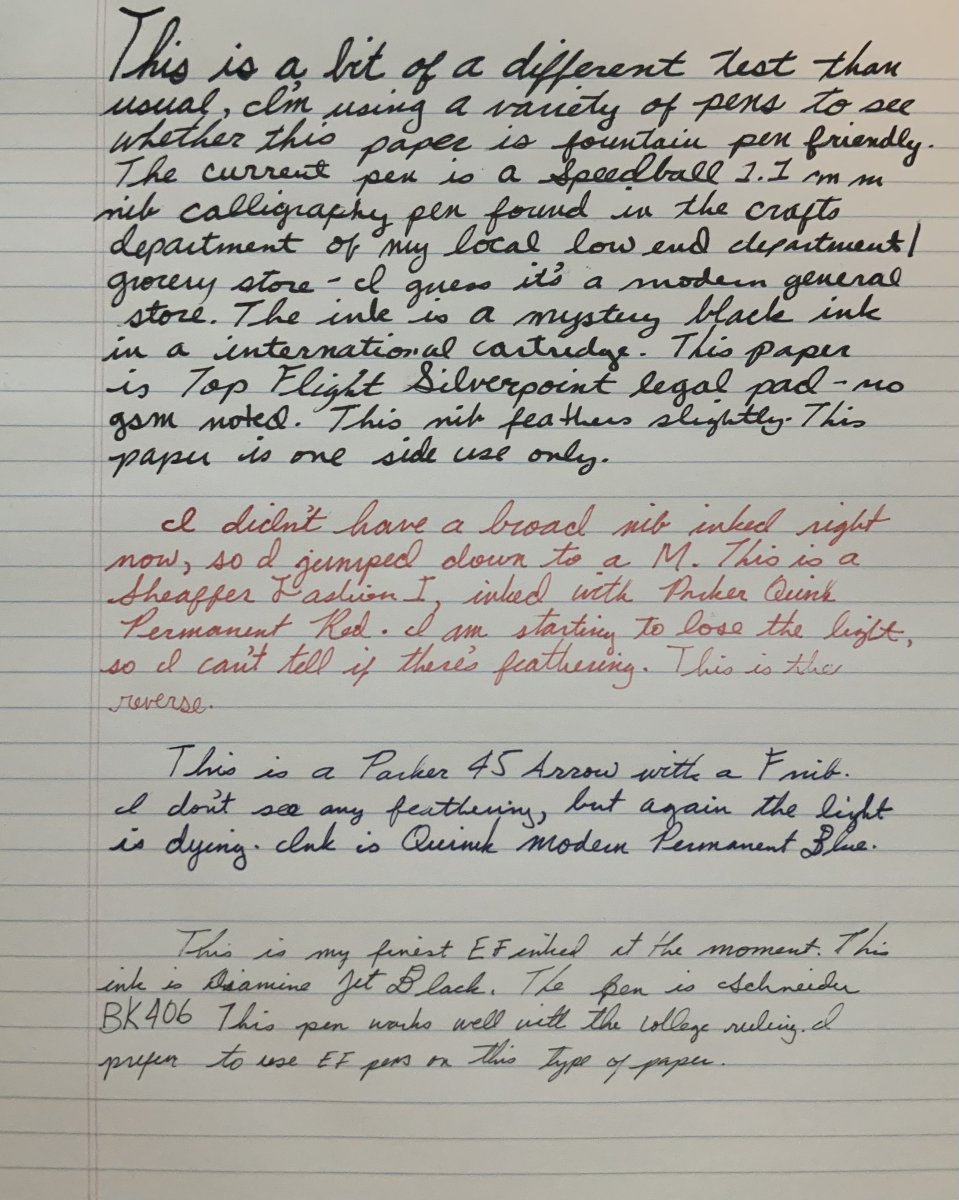 This is a bit of a different test than
usual, I'm using a variety of pens to see
whether this paper is fountain pen friendly.
The current pen is a Speedball 1.1 mm
nib calligraphy pen found in the crafts
department of my local low end department/
grocery store - I guess it's a modern general
store. The ink is a mystery black ink
in a international cartredge. This paper
is Top Flight Silverpoint legal pad - no
gsm noted. This nib feathers slightly. This
paper is one side use only.
I didn't have a broad nib inked right
now, so I jumped down to a M. This is a
Sheaffer Fashion I, inked with Parker Quink
Permanent Red. I am starting to lose the light,
so I can't tell if there's feathering. This is the
reverse.
This is a Parker 45 Arrow with a F nib.
I don't see any feathering, but again the light
is dying. Ink is Quink modern Permanent Blue.
This is my finest EF inked at the moment. This
ink is Diamine Jet Black. The pen is Schneider
BK406 This pen works well with the college ruling. I
prefer to use EF pens on this type of paper.